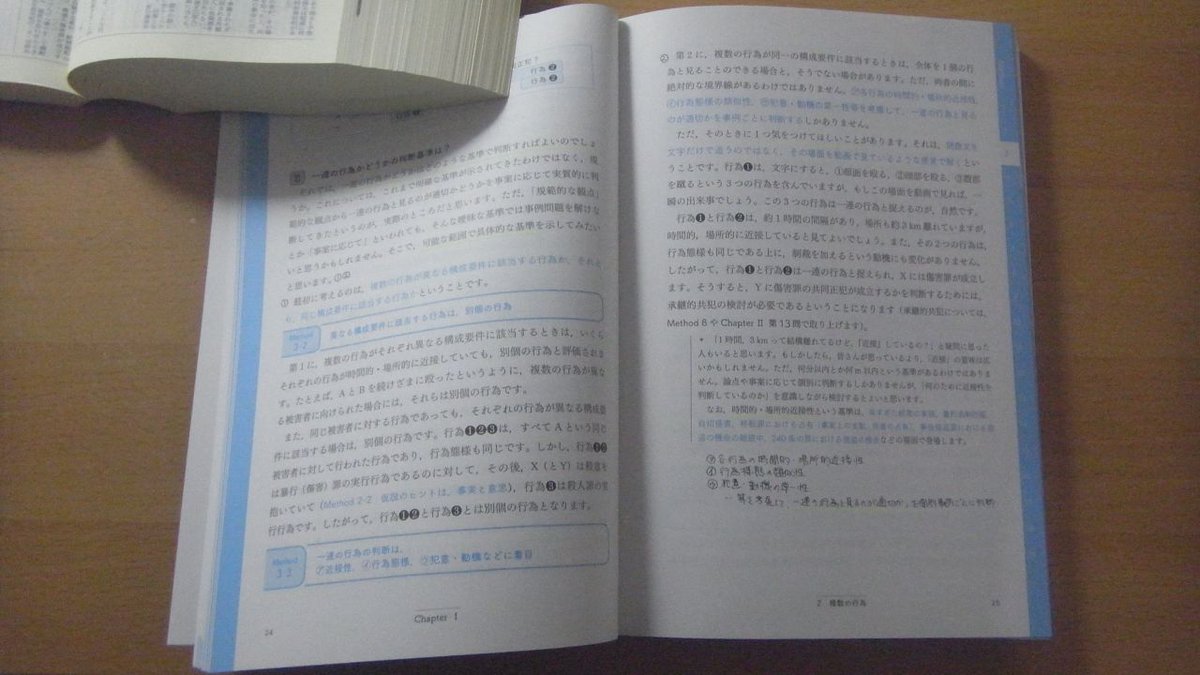 正犯？
行為❷
行為❷
B 一連の行為かどうかの判断基準は？
それでは，一連の行為かどうかはどのような基準で判断すればよいのでしょ
うか。これについては，これまで明確な基準が示されてきたわけではなく，規
範的な観点から一連の行為と見るのが適切かどうかを事案に応じて実質的に判
断してきたというのが，実際のところだと思います。ただ，「規範的な観点」
とか「事案に応じて」といわれても，そんな曖昧な基準では事例問題を解けな
いと思うかもしれません。そこで，可能な範囲で具体的な基準を示してみたい
と思います。
① 最初に考えるのは，複数の行為が異なる構成要件に該当する行為か，それと
も，同じ構成要件に該当する行為かということです。
Method
3-2
異なる構成要件に該当する行為は，別個の行為
第1に，複数の行為がそれぞれ異なる構成要件に該当するときは，いくら
それぞれの行為が時間的・場所的に近接していても，別個の行為と評価されま
す。たとえば，AとBを続けざまに殴ったというように，複数の行為が異な
る被害者に向けられた場合には，それらは別個の行為です。
また，同じ被害者に対する行為であっても，それぞれの行為が異なる構成要
件に該当する場合は，別個の行為です。行為❶❷❸は，すべてAという同じ
被害者に対して行われた行為であり，行為態様も同じです。しかし，行為❶❷
は暴行（傷害）罪の実行行為であるのに対して，その後，X（とY）は殺意を
抱いていて（Method 2-2 仮説のヒントは，事実と意思），行為❸は殺人罪の実
行行為です。したがって，行為❶❷と行為❸とは別個の行為となります。
Method
3-3
一連の行為の判断は，
㋐近接性，㋑行為態様，㋒犯意・動機などに着目
24
Chapter 1
第2に，複数の行為が同一の構成要件に該当するときは，全体を1個の行
為と見ることのできる場合と，そうでない場合があります。ただ，両者の間に
絶対的な境界線があるわけではありません。㋐各行為の時間的・場所的近接性，
㋑行為態様の類似性，㋒犯意・動機の単一性等を考慮して，一連の行為と見る
のが適切かを事例ごとに判断するしかありません。
ただ，そのときに1つ気をつけてほしいことがあります。それは，問題文を
文字だけで追うのではなく，その場面を動画で見ているような感覚で解くとい
うことです。行為❶は，文字にすると，①顔面を殴る，②頭部を殴る，③腹部
を蹴るという3つの行為を含んでいますが，もしこの場面を動画で見れば，一
瞬の出来事でしょう。この3つの行為は一連の行為と捉えるのが，自然です。
行為❶と行為❷は，約1時間の間隔があり，場所も約3km離れていますが，
時間的，場所的に近接していると見てよいでしょう。また，その2つの行為は，
行為態様も同じである上に，制裁を加えるという動機にも変化がありません。
したがって，行為❶と行為❷は一連の行為と捉えられ，Xには傷害罪が成立し
ます。そうすると，Yに傷害罪の共同正犯が成立するかを判断するためには，
承継的共犯の検討が必要であるということになります（承継的共犯については，
Method 8 や Chapter Ⅱ 第13問で取り上げます）。
* 「1時間，3kmって結構離れてるけど，『近接』しているの？」と疑問に思った
人もいると思います。もしかしたら，皆さんが思っているより，「近接」の意味は広
いかもしれません。ただ，何分以内とか何m以内という基準があるわけではありま
せん。論点や事案に応じて個別に判断するしかありませんが，「何のために近接性を
判断しているのか」を意識しながら検討するとよいと思います。
なお，時間的・場所的近接性という基準は，
などの場面で登場します。
㋐各行為の時間的・場所的近接性
㋑行為態様の類似性
㋒犯意・動機の単一性
2 複数の行為
25